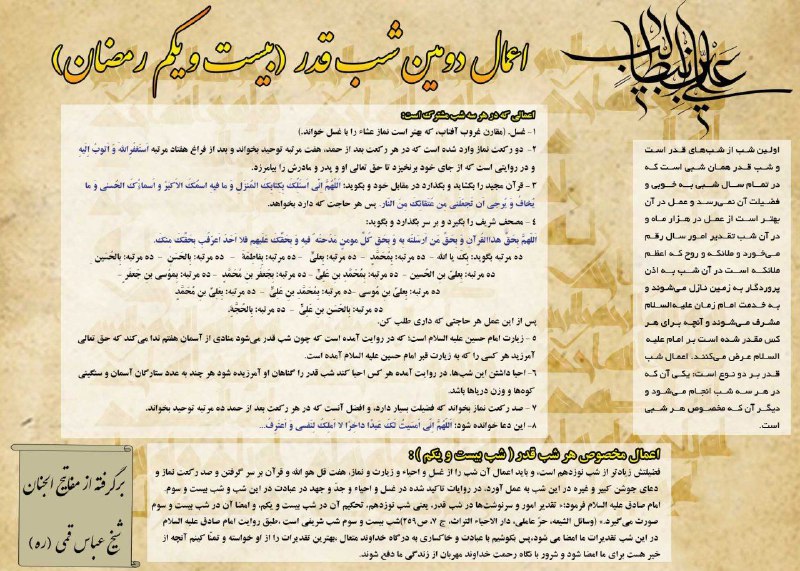 علی بن ابیطالب
اعمال دومین شب قدر (بیست و یکم رمضان)
اولین شب از شب‌های قدر است
و شب قدر همان شبی است که
در تمام سال شبی به خوبی و
فضیلت آن نمی‌رسد و عمل در آن
بهتر است از عمل در هزار ماه و
در آن شب تقدیر امور سال رقم
می‌خورد و ملائکه و روح که اعظم
ملائکه است در آن شب به اذن
پروردگار به زمین نازل می‌شوند و
به خدمت امام زمان علیه‌السلام
مشرف می‌شوند و آنچه برای هر
کس مقدر شده است بر امام علیه
السلام عرض می‌کنند. اعمال شب
قدر بر دو نوع است: یکی آن که
در هر سه شب انجام می‌شود و
دیگر آن که مخصوص هر شبی
است.
اعمالی که در هر سه شب مشترک است:
۱- غسل. (مقارن غروب آفتاب، که بهتر است نماز عشاء را با غسل خواند.)
۲- دو رکعت نماز وارد شده است که در هر رکعت بعد از حمد، هفت مرتبه توحید بخواند و بعد از فراغ هفتاد مرتبه اَستَغفُرِاللهَ وَ اَتوبُ اِلَیهِ
و در روایتی است که از جای خود برنخیزد تا حق تعالی او و پدر و مادرش را بیامرزد.
۳- قرآن مجید را بگشاید و بگذارد در مقابل خود و بگوید: اَللّهُمَّ اِنّی اَسئَلُکَ بِکِتابِکَ المُنزَلِ وَ ما فیهِ اسمُکَ الاَکبَرُ و اَسماؤُکَ الحُسنی وَ ما
یُخافُ وَ یُرجی اَن تَجعَلَنی مِن عُتَقائِکَ مِنَ النار. پس هر حاجت که دارد بخواهد.
۴- مصحف شریف را بگیرد و بر سر بگذارد و بگوید:
اَللّهُمَّ بِحَقِّ هذاالقُرآنِ وَ بِحَقِّ مَن اَرسَلتَه بِه وَ بِحَقِ کُلِّ مومنٍ مَدَحتَه ُ فیهِ وَ بِحَقِّکَ عَلَیهِم فلا اَحَدَ اَعرَفُ بِحَقِّکَ مِنکَ.
ده مرتبه بگوید: بک یا الله - ده مرتبه: بِمُحَمَّدٍ - ده مرتبه: بِعلیٍّ - ده مرتبه: بِفاطمَةَ - ده مرتبه: بالحَسَنِ - ده مرتبه: بالحُسَین
ده مرتبه: بِعلیّ بن الحُسین - ده مرتبه: بِمُحَمَّدِ بنِ عَلیٍّ - ده مرتبه: بِجَعفَر بنِ مُحَمَّدٍ - ده مرتبه: بموُسی بنِ جَعفَرٍ -
ده مرتبه: بِعلیِّ بنِ مُوسی - ده مرتبه: بِمُحَمَّدِ بنِ عَلیٍّ - ده مرتبه: بِعَلیِّ بنِ مُحَمَّدٍ
ده مرتبه: بِالحَسَنِ بنِ عَلیٍّ - ده مرتبه: بِالحُجَّةِ.
پس از این عمل هر حاجتی که داری طلب کن.
۵- زیارت امام حسین علیه السلام است؛ که در روایت آمده است که چون شب قدر می‌شود منادی از آسمان هفتم ندا می‌کند که حق تعالی
آمرزید هر کسی را که به زیارت قبر امام حسین علیه السلام آمده است.
۶- احیا داشتن این شب‌ها. در روایت آمده هر کس احیا کند شب قدر را گناهان او آمرزیده شود هر چند به عدد ستارگان آسمان و سنگینی
کوه‌ها و وزن دریاها باشد.
۷- صد رکعت نماز بخواند که فضیلت بسیار دارد، و افضل آنست که در هر رکعت بعد از حمد ده مرتبه توحید بخواند.
۸- این دعا خوانده شود: اَللّهُمَّ اِنّی اَمسَیتُ لَکَ عَبدًا داخِرًا لا اَملِکُ لِنَفسی وَ اَعتَرِفُ...
اعمال مخصوص هر شب قدر ( شب بیست و یکم ) :
فضیلتش زیادتر از شب نوزدهم است، و باید اعمال آن شب را از غسل و احیاء و زیارت و نماز، هفت قل هو الله و قرآن بر سر گرفتن و صد رکعت نماز و
دعای جوشن کبیر و غیره در این شب به عمل آورد، در روایات تاکید شده در غسل و احیاء و جدّ و جهد در عبادت در این شب و شب بیست و سوم.
امام صادق علیه السلام فرمود:« تقدیر امور و سرنوشت‌ها در شب قدر، یعنی شب نوزدهم، تحکیم آن در شب بیست و یکم، و امضا آن در شب بیست و سوم
صورت می‌گیرد.» (وسائل الشیعه، حرّ عاملی، دار الاحیاء التراث، ج ۷، ص ۲۵۹)شب بیست و سوم شب شریفی است ،طبق روایت امام صادق علیه السلام
در این شب تقدیرات ما امضا می شود،پس بکوشیم با عبادت و خاکساری به درگاه خداوند متعال ،بهترین تقدیرات را از او خواسته و تمنّا کینم آنچه از
خیر هست برای ما امضا شود و شرور با نگاه رحمت خداوند مهربان از زندگی ما دفع شوند.
برگرفته از مفاتیح الجنان
شیخ عباس قمی (ره)